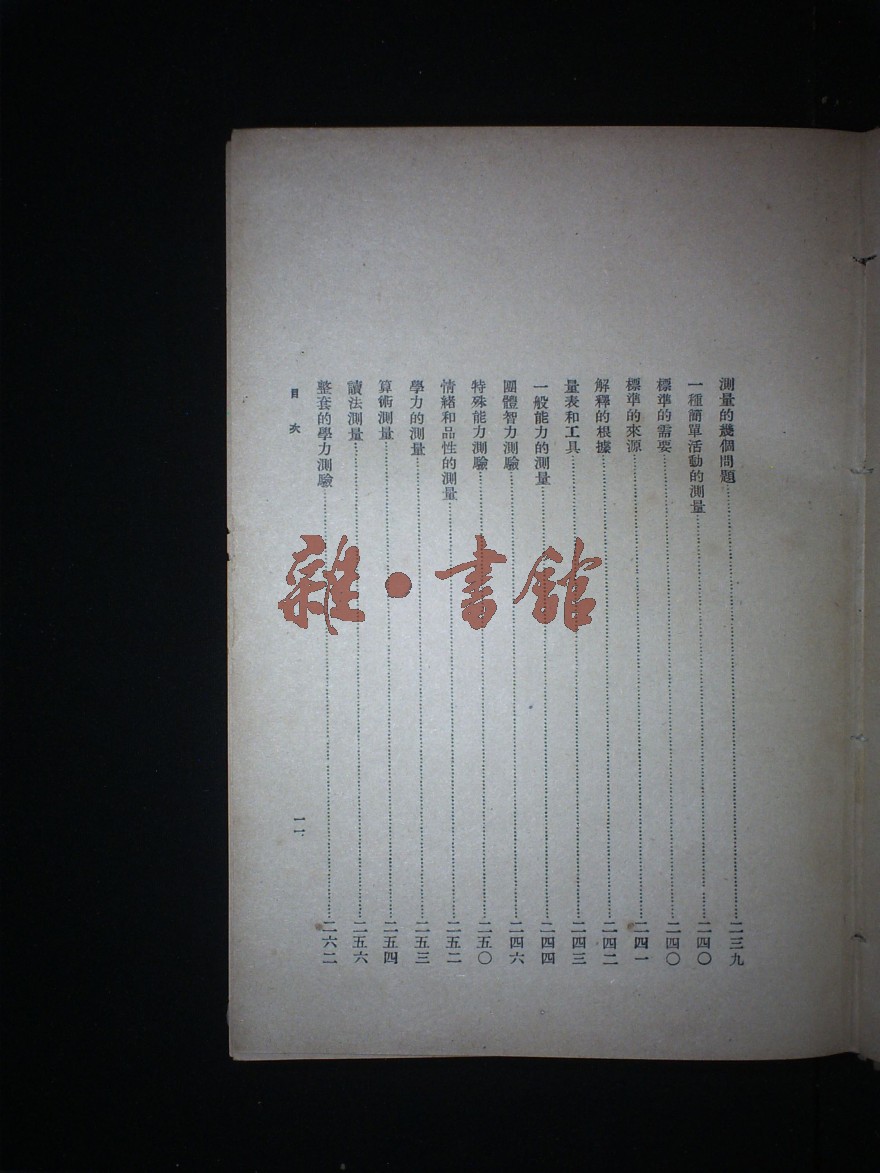 測量的幾個問題……二三九
一種簡單活動的測量……二四〇
標準的需要……二四〇
標準的來源……二四一
解釋的根據……二四二
量表和工具……二四三
一般能力的測量……二四四
團體智力測驗……二四六
特殊能力測驗……二五〇
情緒和品性的測量……二五二
學力的測量……二五三
算術測量……二五四
讀法測量……二五六
整套的學力測驗……二六二
目次
一一
雜·書館